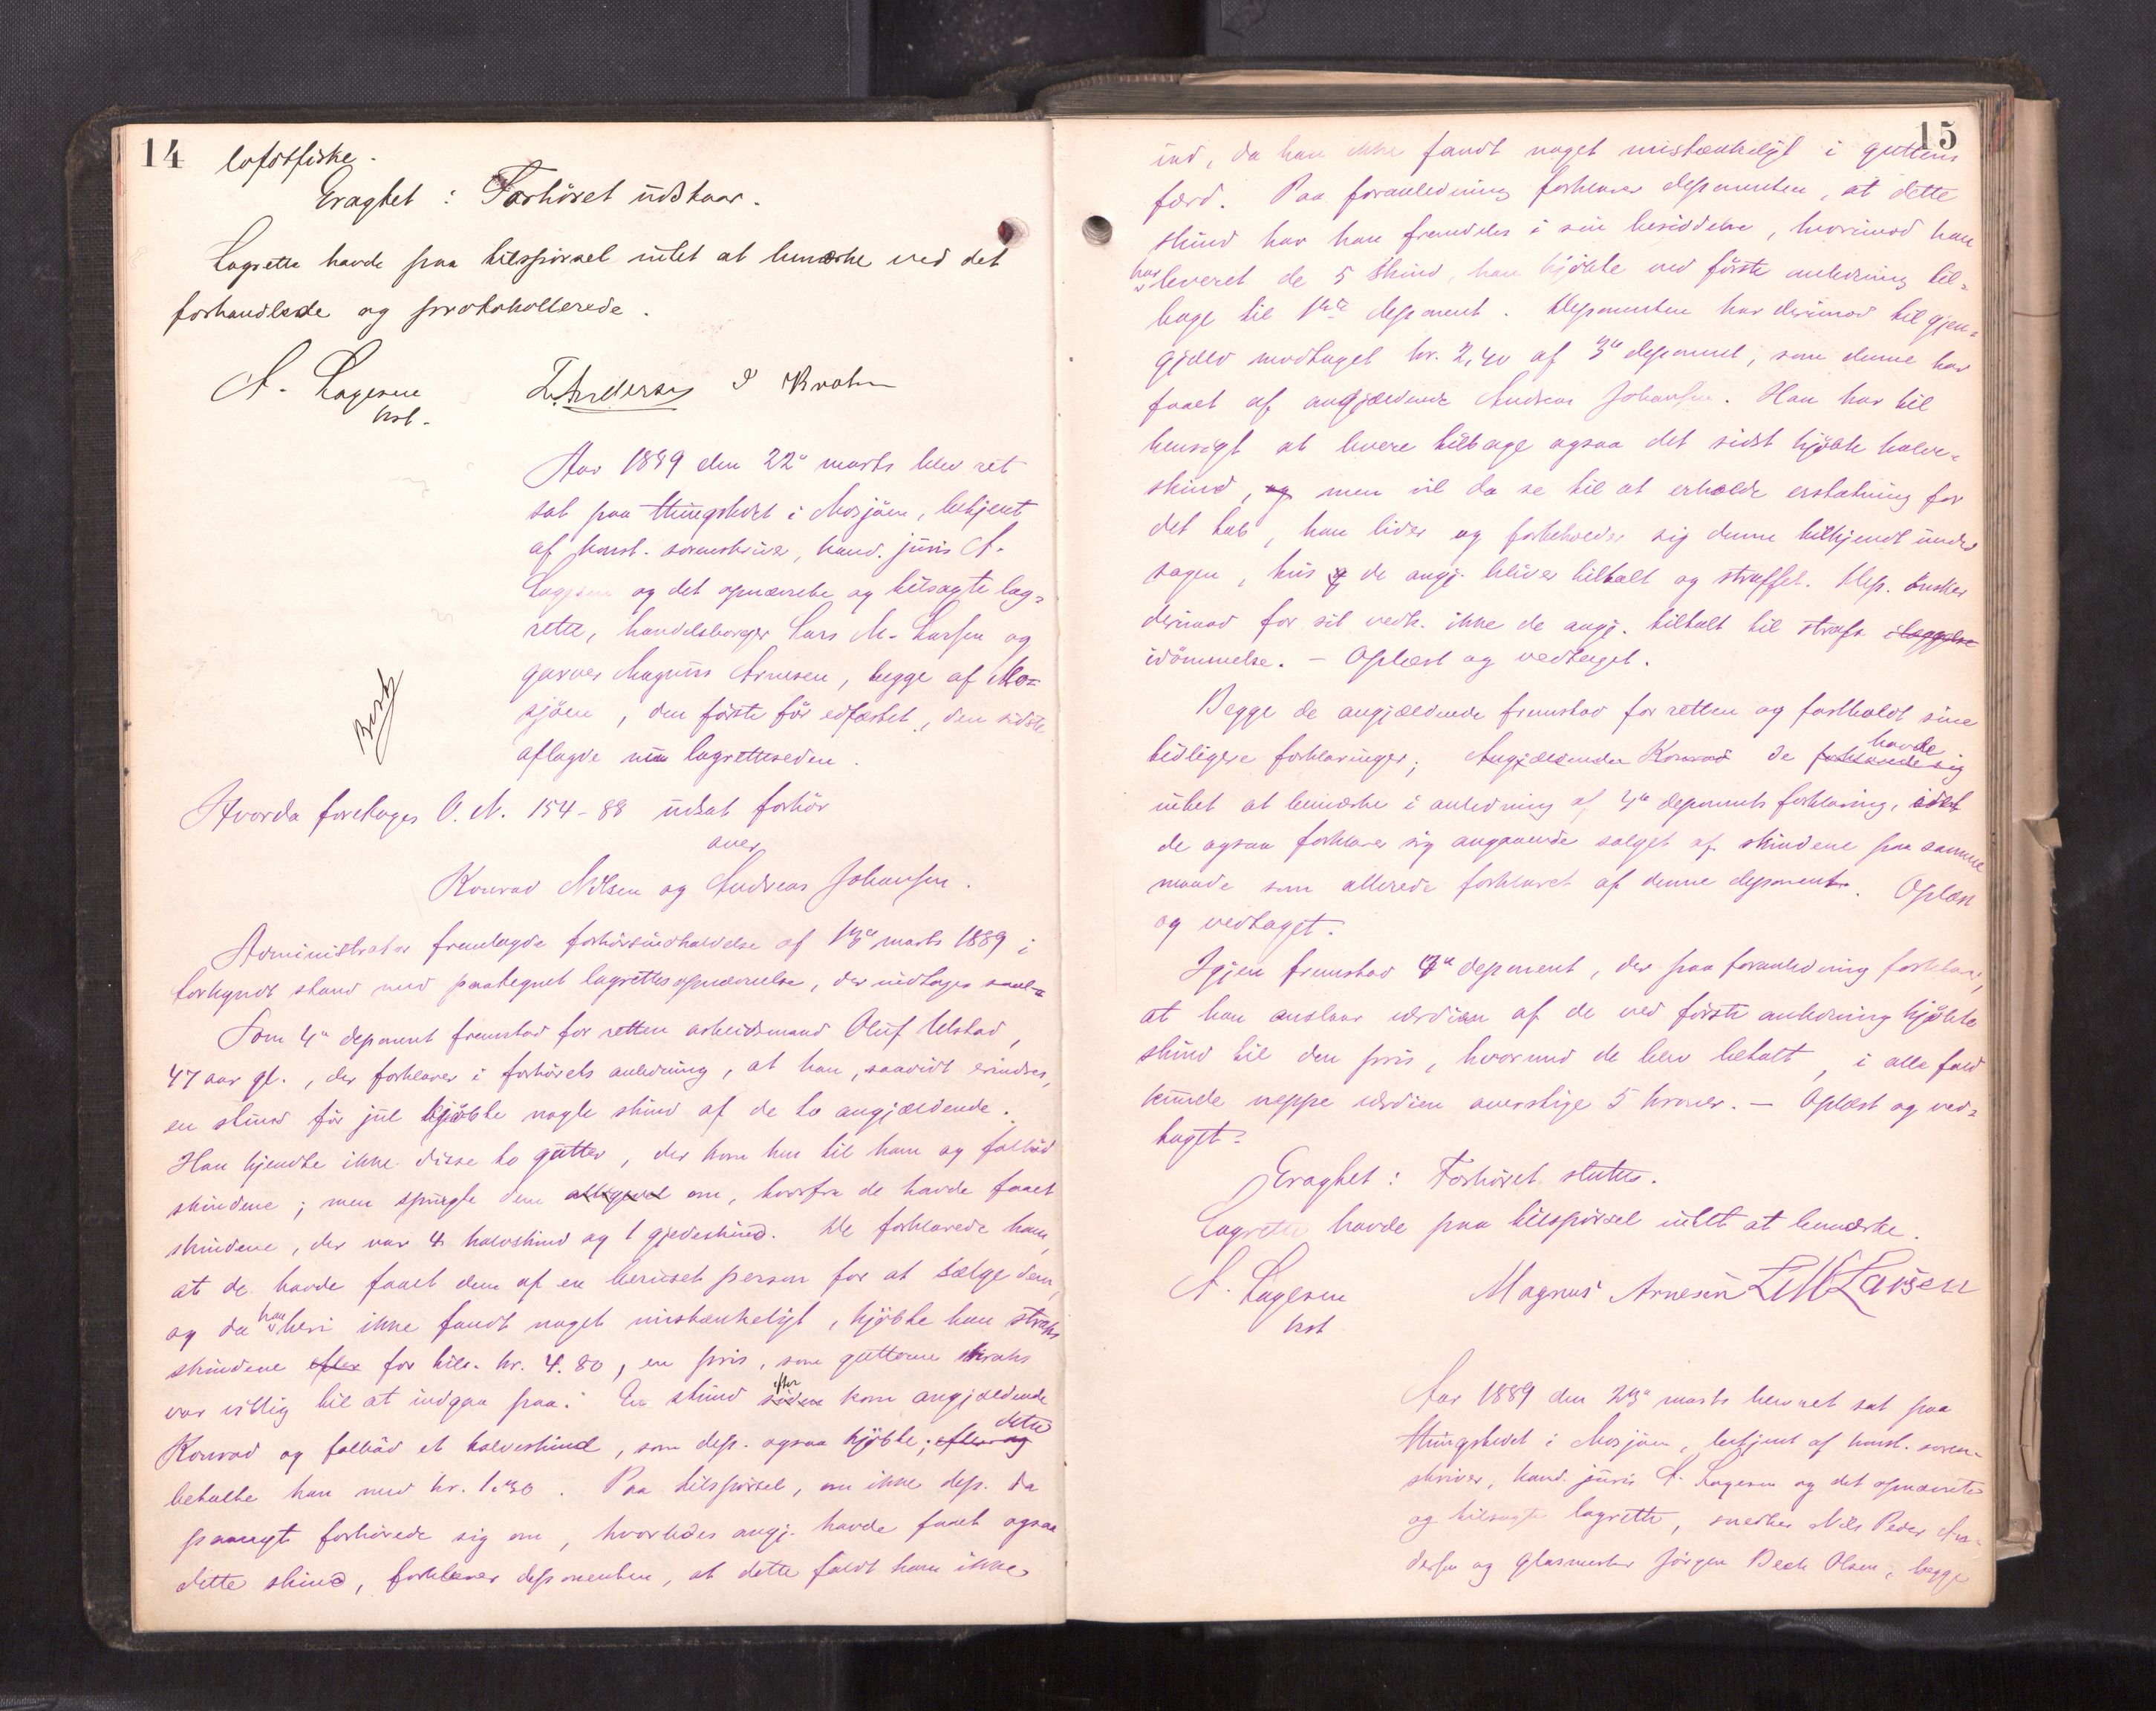 14
lofotfiske.
Eragtet: Forhöret udstaar.
Lagrette havde paa tilspörsel intet at bemærke ved det
forhandlede og protokollerede.
A. Lagesen
kst.
Aar 1889 den 22de marts blev ret
sat paa thingstedet i Mosjöen, betjent
af konst. sorenskriver, kand. juris A.
Lagesen og det opnævnte og tilsagte lag-
rette, handelsborger Lars M. Larsen og
garver Magnus Arnesen, begge af Mo-
sjöen, den förste för edfæstet, den sidste
aflagde nu lagretteseden.
Hvorda foretoges O. N. 154-88 udsat forhör
over
Konrad Nilsen og Andreas Johansen.
Administrator fremlagde forhörsindkaldelse af marts 1889 i
forkyndt stand med paategnet lagrettesopnævnelse, der indtages
Som 4de deponent fremstod for retten arbeidsmand Oluf Ulstad,
47 aar gl., der forklarer i forhörets anledning, at han, saavidt erindres,
en stund för jul kjöbte nogle skind af de to angjældende.
Han kjendte ikke disse to gutter, der kom hen til ham og falböd
skindene; men spurgte dem alligevel om, hvorfra de havde faaet
skindene, der var 4 kalvskind og 1 gjedeskind. De forklarede ham,
at de havde faaet dem af en beruset person for at sælge dem,
og da han heri ikke fandt noget mistænkeligt, kjöbte han straks
skindene efter for tils. kr. 4.80, en pris, som gutterne straks
var villig til at indgaa paa. En stund siden efter kom angjældende
Konrad og falböd et kalveskind, som dep. ogsaa kjöbte; efter og dette
betalte han med kr. 1.30. Paa tilspörsel, om ikke dep. da
paanyt forhörede sig om, hvorledes angj. havde faaet ogsaa
dette skind, forklarer deponenten, at dette faldt ham ikke
15
ind, da han ikke fandt noget mistænkeligt i guttens
færd. Paa foranledning forklarer deponenten, at dette
skind har han fremdeles i sin besiddelse, hvorimod han
har leveret de 5 skind, han kjöbte ved förste anledning til-
bage til 1ste deponent. Deponenten har derimod til gjen-
gjæld modtaget kr. 2,40 af 3de deponent, som denne har
faaet af angjældende Andreas Johansen. Han har til
hensigt at levere tilbage ogsaa det sidst kjöbte kalve-
skind, og men vil da se til at erholde erstatning for
det tab, han lider og forbeholder sig denne tilkjendt under
sagen, hvis de angj. bliver tiltalt og straffet. Dep. önsker
derimod for sit vedk. ikke de angj. tiltalt til strafs ilæggelse
idömmelse. — Oplæst og vedtaget.
Begge de angjældende fremstod for retten og fastholdt sine
tidligere forklaringer; Angjældende Konrad De havde
intet at bemærke i anledning af 4de deponents forklaring, idet
de ogsaa forklarer sig angaaende salget af skindene paa samme
maade som allerede forklaret af denne deponent. Oplæst
og vedtaget.
Igjen fremstod deponent, der paa foranledning forklarer,
at han anslaar værdien af de ved förste anledning kjöbte
skind til den pris, hvormed de blev betalt, i alle fald
kunde neppe værdien overstige 5 kroner. — Oplæst og ved-
taget.
Eragtet: Forhöret sluttes.
Lagrette havde paa tilspörsel intet at bemærke.
A. Lagesen Magnus Arnesen L M Larsen
kst
Aar 1889 den 23de marts blev ret sat paa
thingstedet i Mosjöen, betjent af konst. soren-
skriver, kand. juris A. Lagesen og det opnævnte
og tilsagte lagrette, snedker Nils Peder An-
dersen og glasmester Jörgen Beck Olsen, begge